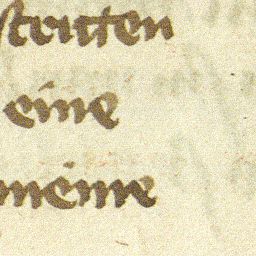 stritten
eine
meine